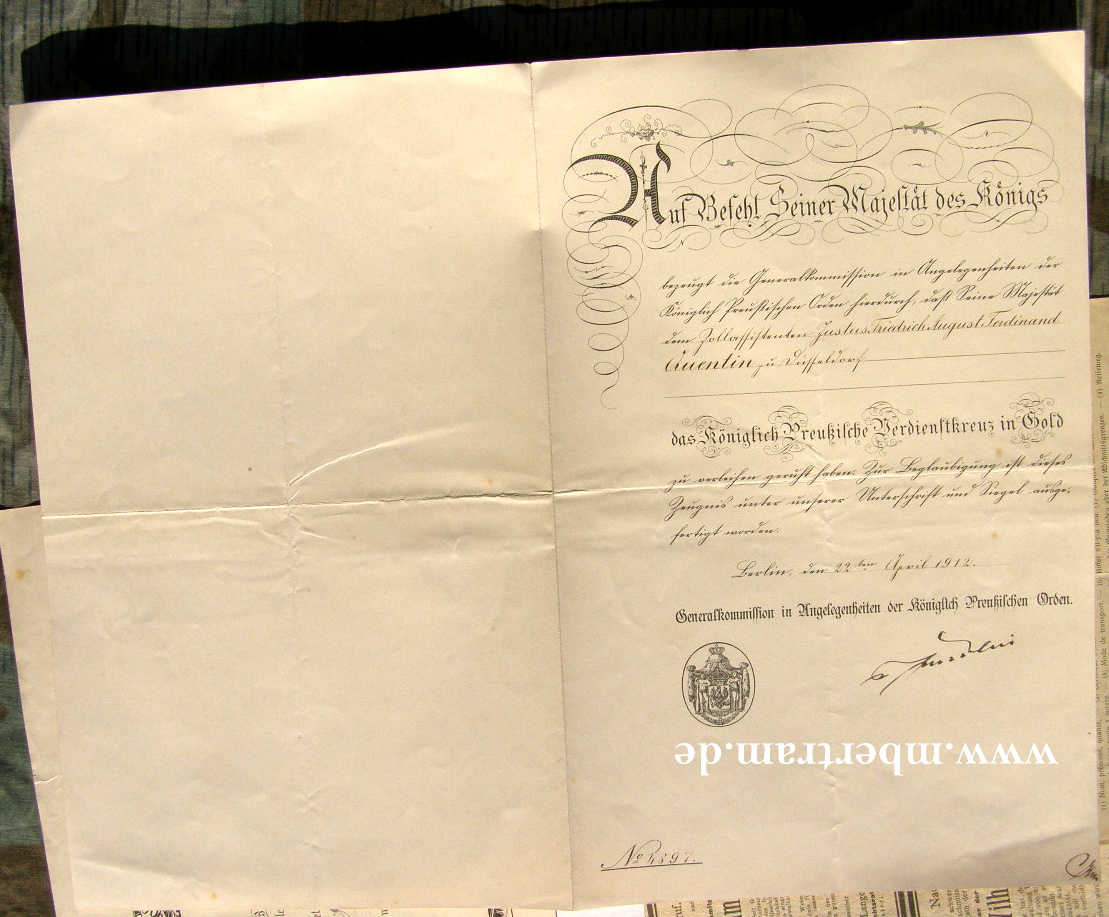 Auf Befehl Seiner Majestät des Königs
bezeugt die Generalkommission in Angelegenheiten der
Königlich Preußischen Orden hierdurch, daß Seine Majestät
dem Zollassistenten Justus Friedrich August Ferdinand
Quentin zu Düsseldorf
das Königlich Preußische Verdienstkreuz in Gold
zu verleihen geruht haben. Zur Beglaubigung ist dieses
Zeugnis unter unserer Unterschrift und Siegel ausge-
fertigt worden.
Berlin, den 22ten April 1912.
Generalkommission in Angelegenheiten der Königlich Preußischen Orden.
www.mbertram.de